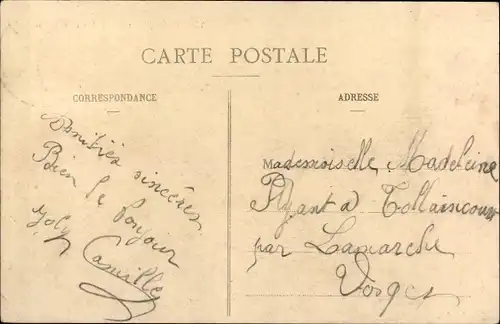 CARTE POSTALE
CORRESPONDANCE
Amitiés sincères
Bien le bonjour
Joly Camille
ADRESSE
Mademoiselle Madeleine
à Tollaincourt
par Lamarche
Vosges